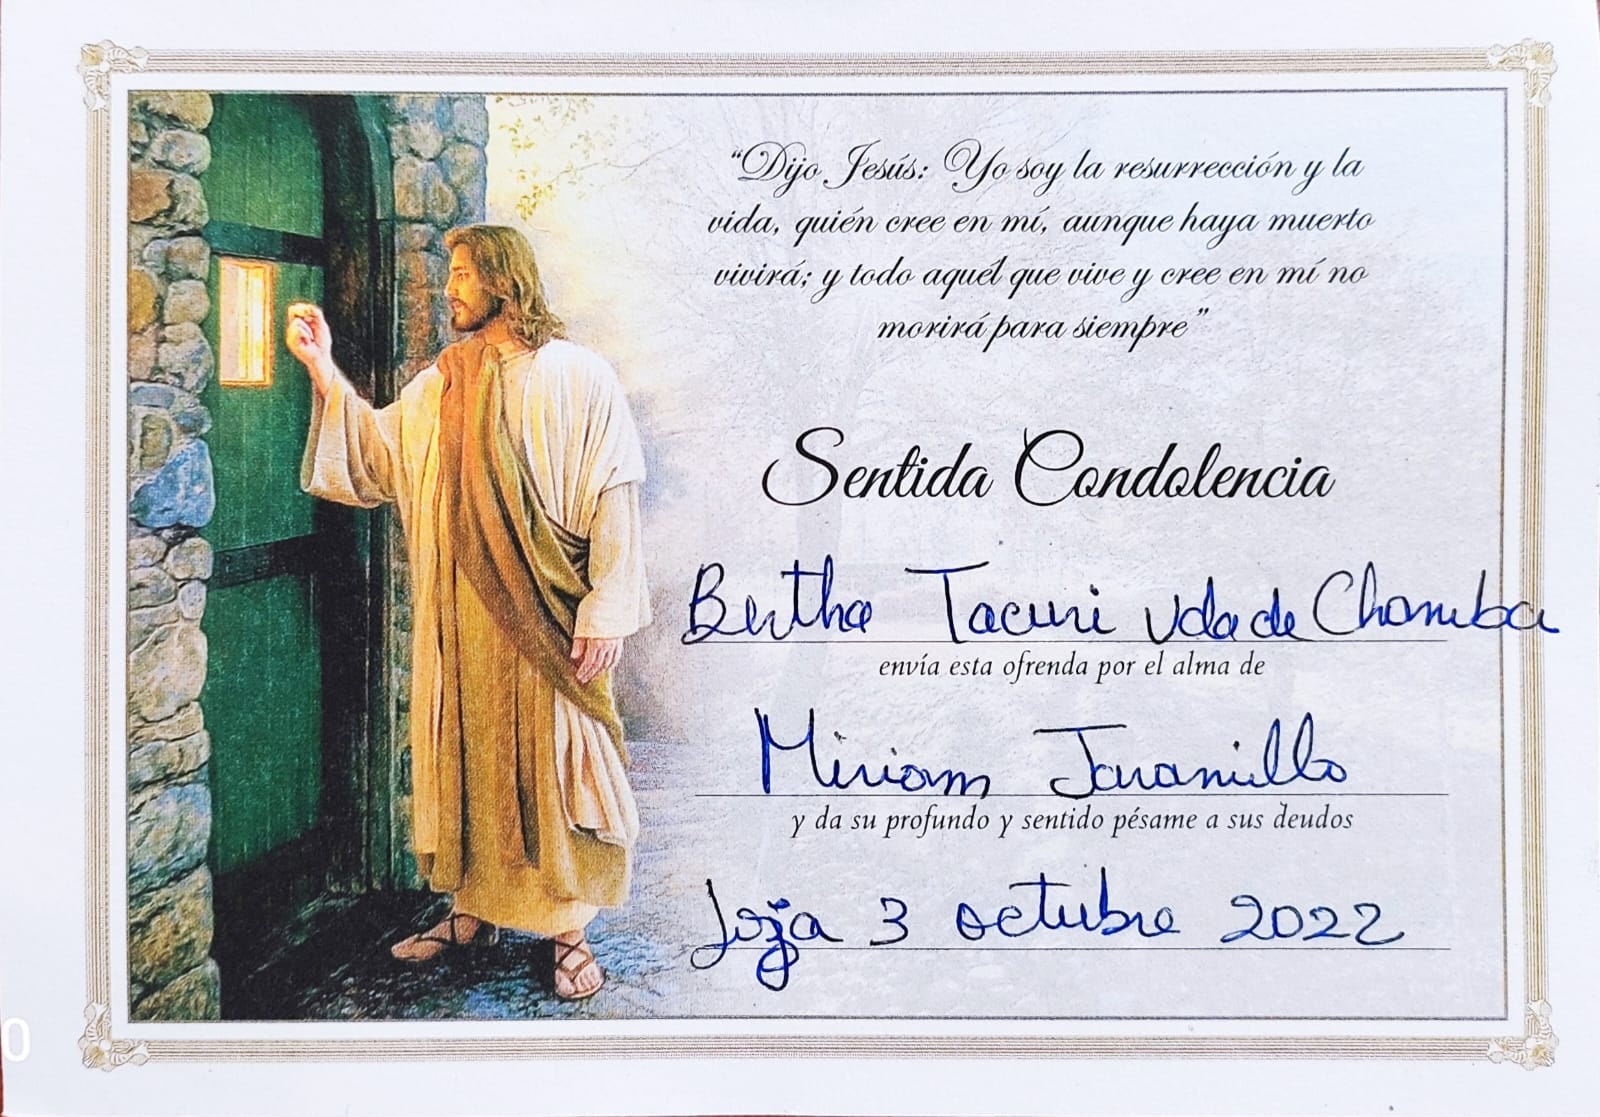 “Dijo Jesús: Yo soy la resurrección y la
vida, quién cree en mí, aunque haya muerto
vivirá; y todo aquél que vive y cree en mí no
morirá para siempre”
Sentida Condolencia
Bertha Tacuri Vda de Chamba
envía esta ofrenda por el alma de
Miriam Jaramillo
y da su profundo y sentido pésame a sus deudos
Loja 3 octubre 2022
0